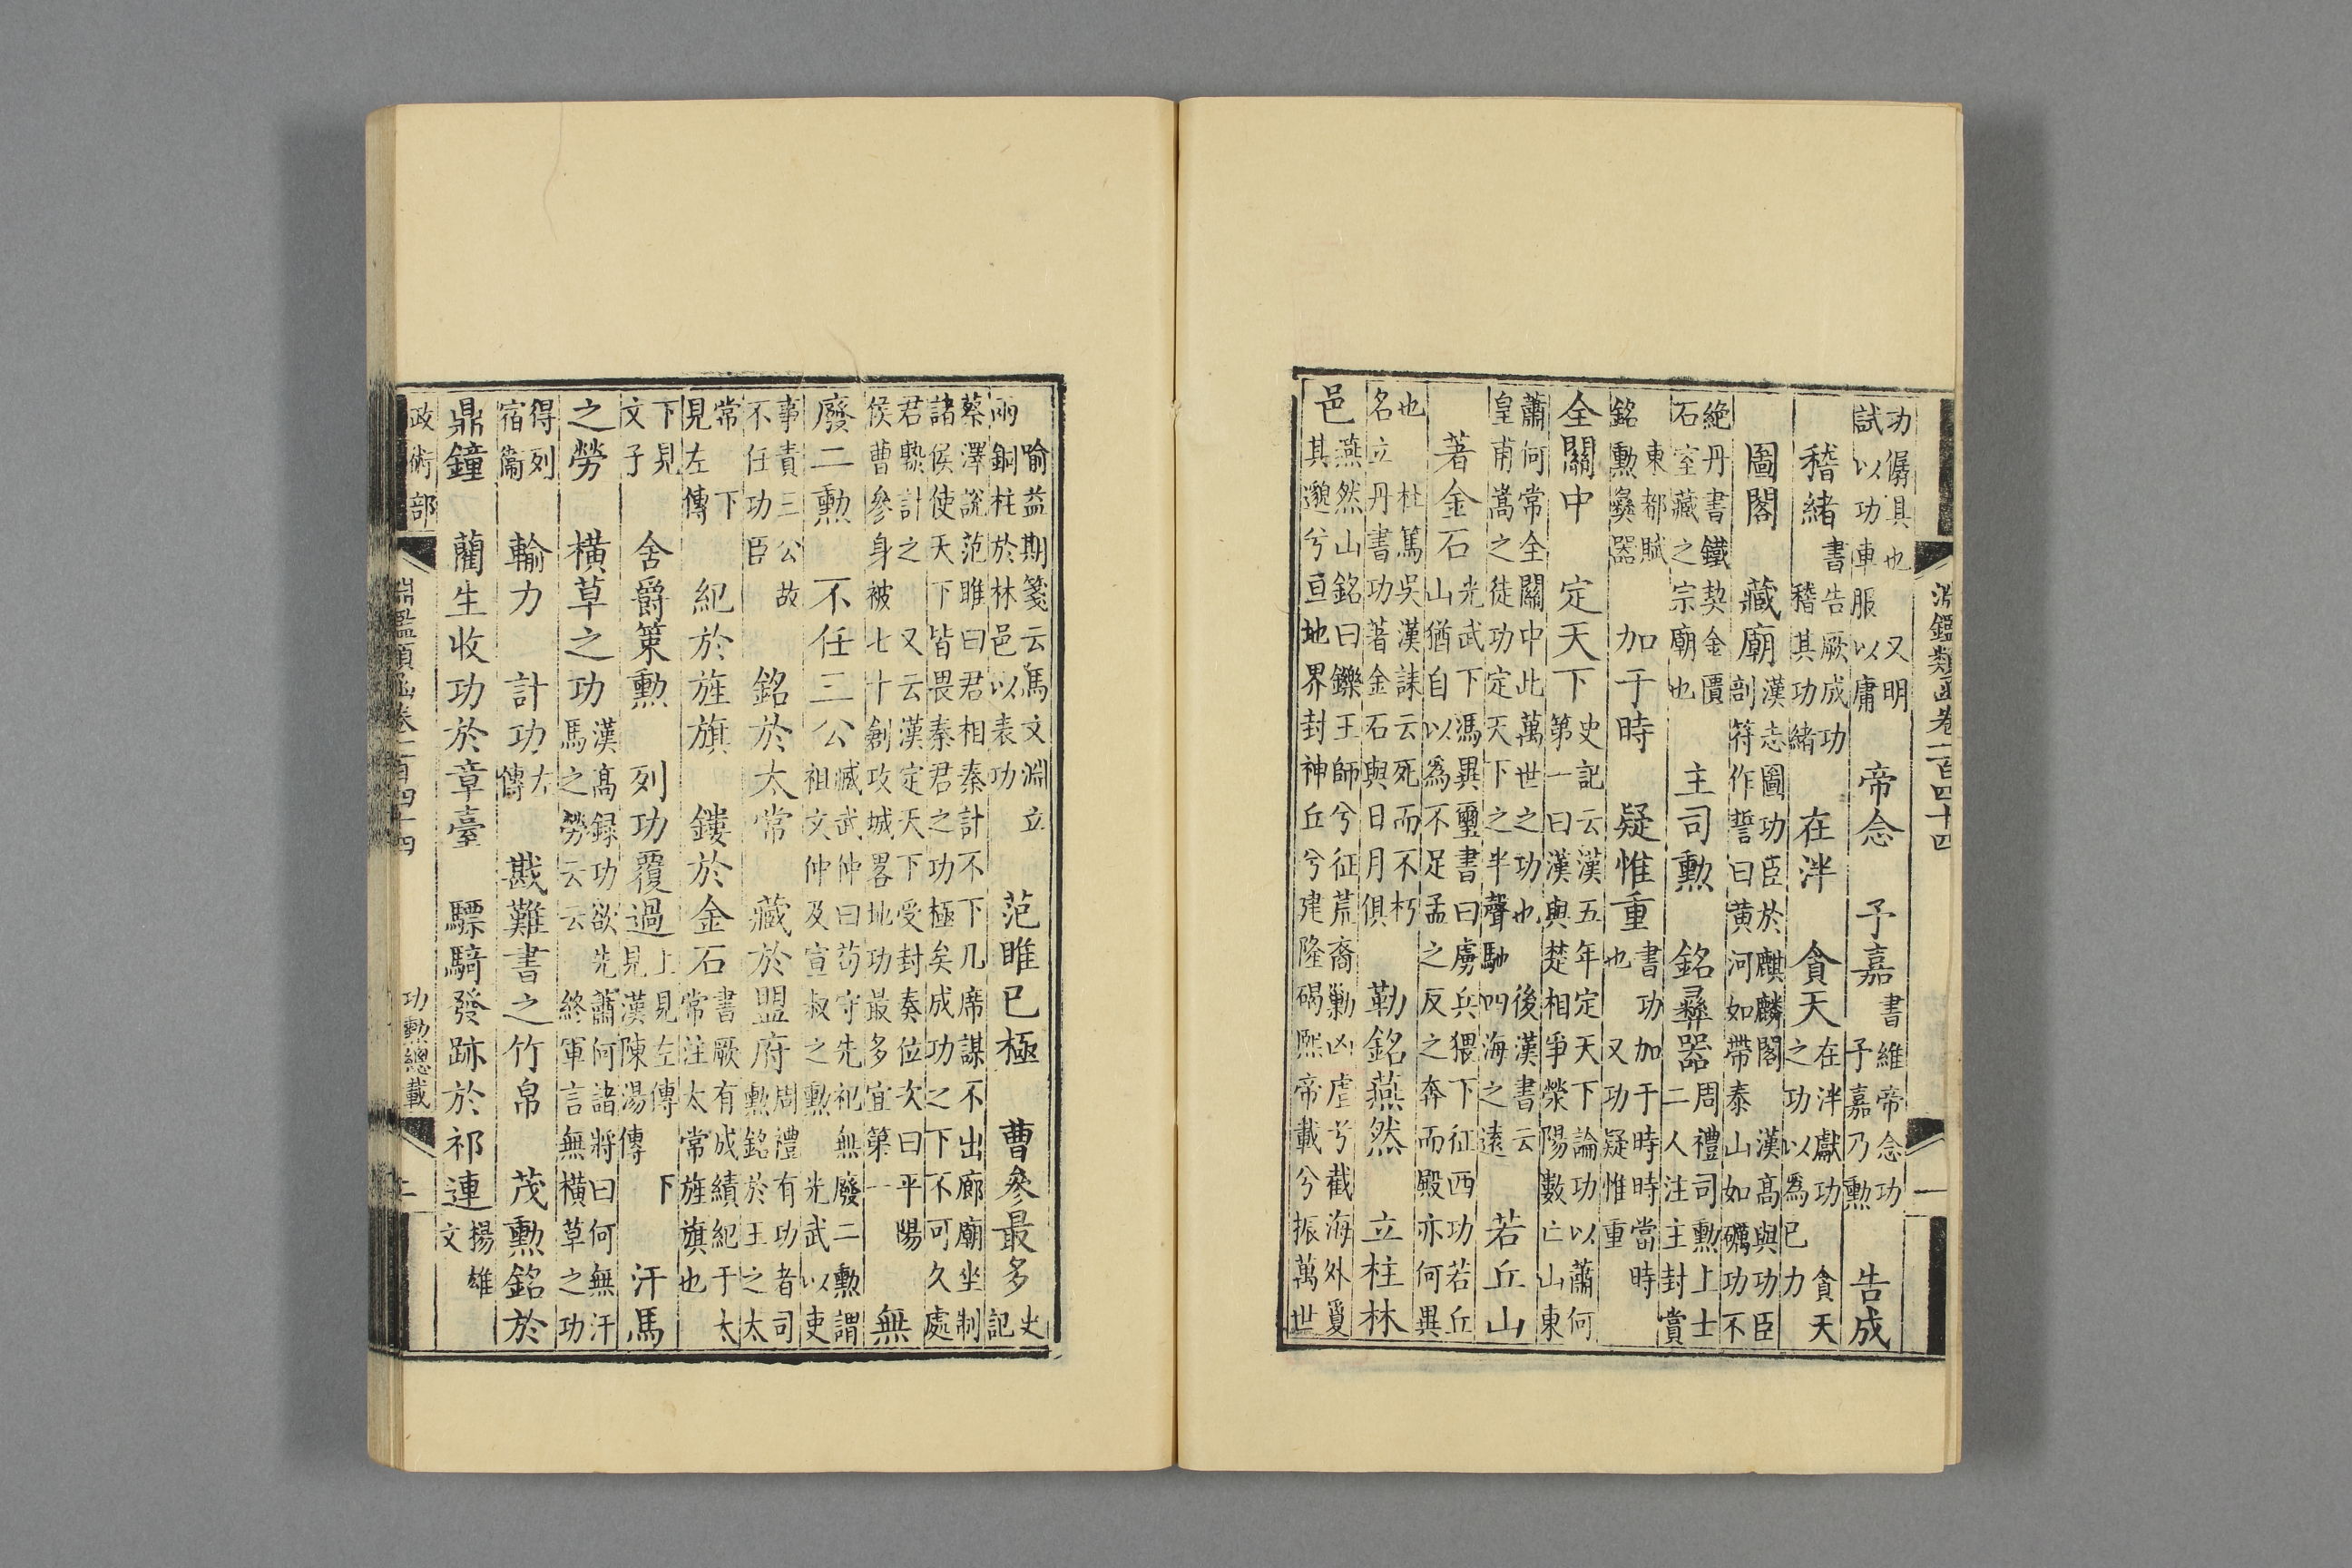 淵鑑類函卷一百四十四 一
功僝具也 又明
試以功車服以庸
帝念 予嘉
書維帝念功
予嘉乃勲
告成
稽緒
書告厥成功
稽其功緒
在泮 貪天
在泮獻功 貪天
之功以為已力
圖閣 藏廟
漢志圖功臣於麒麟閣 漢高與功臣
剖符作誓曰黄河如帶泰山如礪功不
絶丹書鐵契金匱
石室藏之宗廟也
主司勲 銘彛器
周禮司勲上士
二人注主封賞
東都賦
銘勲彛器
加于時 疑惟重
書功加于時時當時
也 又功疑惟重
全關中 定天下
史記云漢五年定天下論功以蕭何
第一曰漢與楚相爭滎陽數亡山東
蕭何常全關中此萬世之功也 後漢書云
皇甫嵩之徒功定天下之半聲馳四海之遠
若丘山
著金石
光武下馮異璽書曰虜兵猥下征西功若丘
山猶自以為不足孟之反之奔而殿亦何異
也 杜篤吳漢誄云死而不朽
名立丹書功著金石與日月俱
勒銘燕然 立柱林
邑
燕然山銘曰鑠王師兮征荒裔勦凶虐兮截海外夐
其邈兮亘地界封神丘兮建隆碣熙帝載兮振萬世
喻益期箋云馬文淵立
兩銅柱於林邑以表功
范睢已極 曹參最多
史
記
蔡澤說范睢曰君相秦計不下几席謀不出廊廟坐制
諸侯使天下皆畏秦君之功極矣成功之下不可久處
君勲計之 又云漢定天下受封奏位次曰平陽
侯曹參身被七十創攻城畧地功最多宜第一
無
廢二勲 不任三公
臧武仲曰苟守先祀無廢二勲謂
祖文仲及宣叔之勲 光武以吏
事責三公故
不任功臣
銘於太常 藏於盟府
周禮有功者司
勲銘於王之太
常 下
見左傳
紀於旌旗 鏤於金石
書厥有成績紀于太
常注太常旌旗也
下見
文子
舍爵策勲 列功覆過
上見左傳 下
見漢陳湯傳
汗馬
之勞 橫草之功
漢高録功欲先蕭何諸將曰何無汗
馬之勞云云 終軍言無橫草之功
得列
宿篇
輸力 計功
左
傳
戡難書之竹帛 茂勲銘於
鼎鐘 藺生收功於章臺 驃騎發跡於祁連
揚雄
文
政術部 淵鑑類函卷一百四十四 功勲總載 二